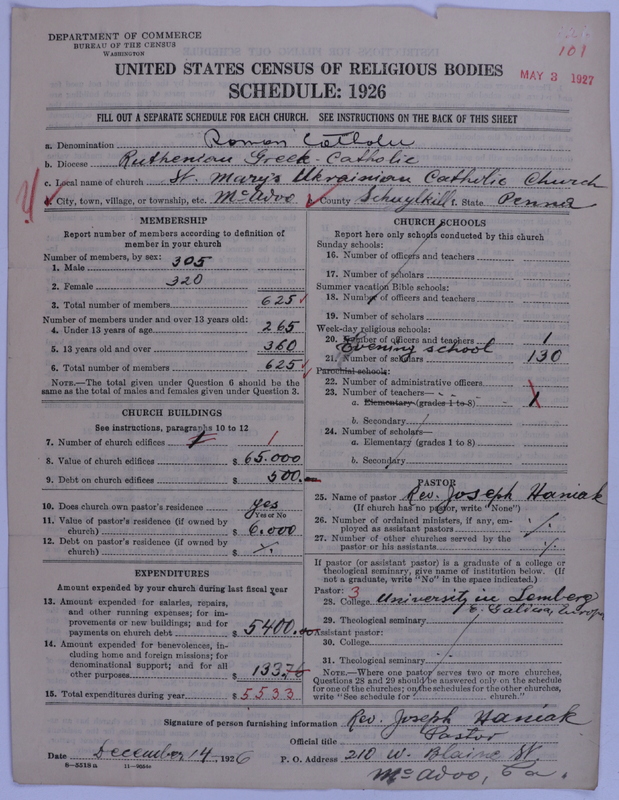 DEPARTMENT OF COMMERCE
BUREAU OF THE CENSUS
WASHINGTON
101
MAY 3 1927
UNITED STATES CENSUS OF RELIGIOUS BODIES
SCHEDULE: 1926
FILL OUT A SEPARATE SCHEDULE FOR EACH CHURCH. SEE INSTRUCTIONS ON THE BACK OF THIS SHEET
a. Denomination Roman Catholic
b. Diocese Ruthenian Greek-Catholic
c. Local name of church St. Mary's Ukrainian Catholic Church
d. City, town, village, or township, etc. McAdoo County Schuylkill f. State Penna
MEMBERSHIP
Report number of members according to definition of
member in your church
Number of members, by sex:
1. Male 305
2. Female 320
3. Total number of members 625
Number of members under and over 13 years old:
4. Under 13 years of age 265
5. 13 years old and over 360
6. Total number of members 625
NOTE.—The total given under Question 6 should be the
same as the total of males and females given under Question 3.
CHURCH BUILDINGS
See instructions, paragraphs 10 to 12
7. Number of church edifices 1 1
8. Value of church edifices $ 65.000
9. Debt on church edifices $ 500.
10. Does church own pastor's residence yes
Yes or No
11. Value of pastor's residence (if owned by
church) $ 6.000
12. Debt on pastor's residence (if owned by
church) $ ·/.
EXPENDITURES
Amount expended by your church during last fiscal year
13. Amount expended for salaries, repairs,
and other running expenses; for im-
provements or new buildings; and for
payments on church debt $ 5400.00
14. Amount expended for benevolences, in-
cluding home and foreign missions; for
denominational support; and for all
other purposes $ 133.76
15. Total expenditures during year $ 5533
CHURCH SCHOOLS
Report here only schools conducted by this church
Sunday schools:
16. Number of officers and teachers
17. Number of scholars
Summer vacation Bible schools:
18. Number of officers and teachers
19. Number of scholars
Week-day religious schools:
20. Number of officers and teachers 1
Evening school
21. Number of scholars 130
Parochial schools:
22. Number of administrative officers
23. Number of teachers—
a. Elementary (grades 1 to 8) 1
b. Secondary
24. Number of scholars—
a. Elementary (grades 1 to 8)
b. Secondary
PASTOR
25. Name of pastor Rev. Joseph Haniak
(If church has no pastor, write "None")
26. Number of ordained ministers, if any, em-
ployed as assistant pastors ·/.
27. Number of other churches served by the
pastor or his assistants ·/.
If pastor (or assistant pastor) is a graduate of a college or
theological seminary, give name of institution below. (If
not a graduate, write "No" in the space indicated.)
Pastor: 3
28. College University in Lemberg
E. Galicia, Europe
29. Theological seminary
Assistant pastor:
30. College
31. Theological seminary
NOTE.—Where one pastor serves two or more churches,
Questions 28 and 29 should be answered only on the schedule
for one of the churches; on the schedules for the other churches,
write "See schedule for church."
Signature of person furnishing information Rev. Joseph Haniak
Official title Pastor
Date December 14, 1926 P. O. Address 210 W. Blaine St.
McAdoo, Pa.
8—5518a 11—9054a